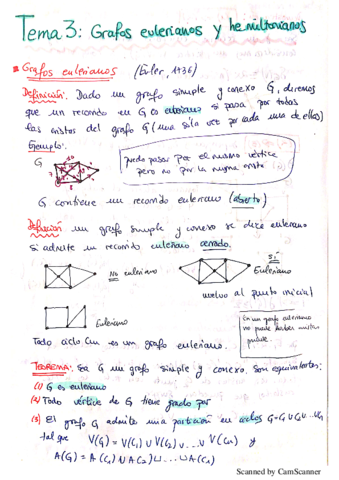 Tema 3: Grafos eulerianos y hamiltonianos
Grafos eulerianos (Euler, 1736)
Definición: Dado un grafo simple y conexo G, diremos
que un recorrido en G es euleriano si pasa por todas
las aristas del grafo G (una sola vez por cada una de ellas)
Ejemplo:
G
puede pasar por el mismo vértice
pero no por la misma arista
G contiene un recorrido euleriano (abierto)
Definición un grafo simple y conexo se dice euleriano
si admite un recorrido euleriano cerrado.
No euleriano
sí
Euleriano
vuelvo al punto inicial
Euleriano
En un grafo euleriano
no puede haber
puente.
Todo ciclo Cn es un grafo euleriano.
TEOREMA: Sea G un grafo simple y conexo. Son equivalentes:
(1) G es euleriano
(2) Todo vértice de G tiene grado par
(3) El grafo G admite una partición en ciclos G=C1∪C2∪...∪Cn
tal que V(G) = V(C1) ∪ V(C2) ∪ ... ∪ V(Cn) y
A(G) = A(C1) ⊔ A(C2) ⊔ ... ⊔ A(Cn)
Scanned by CamScanner